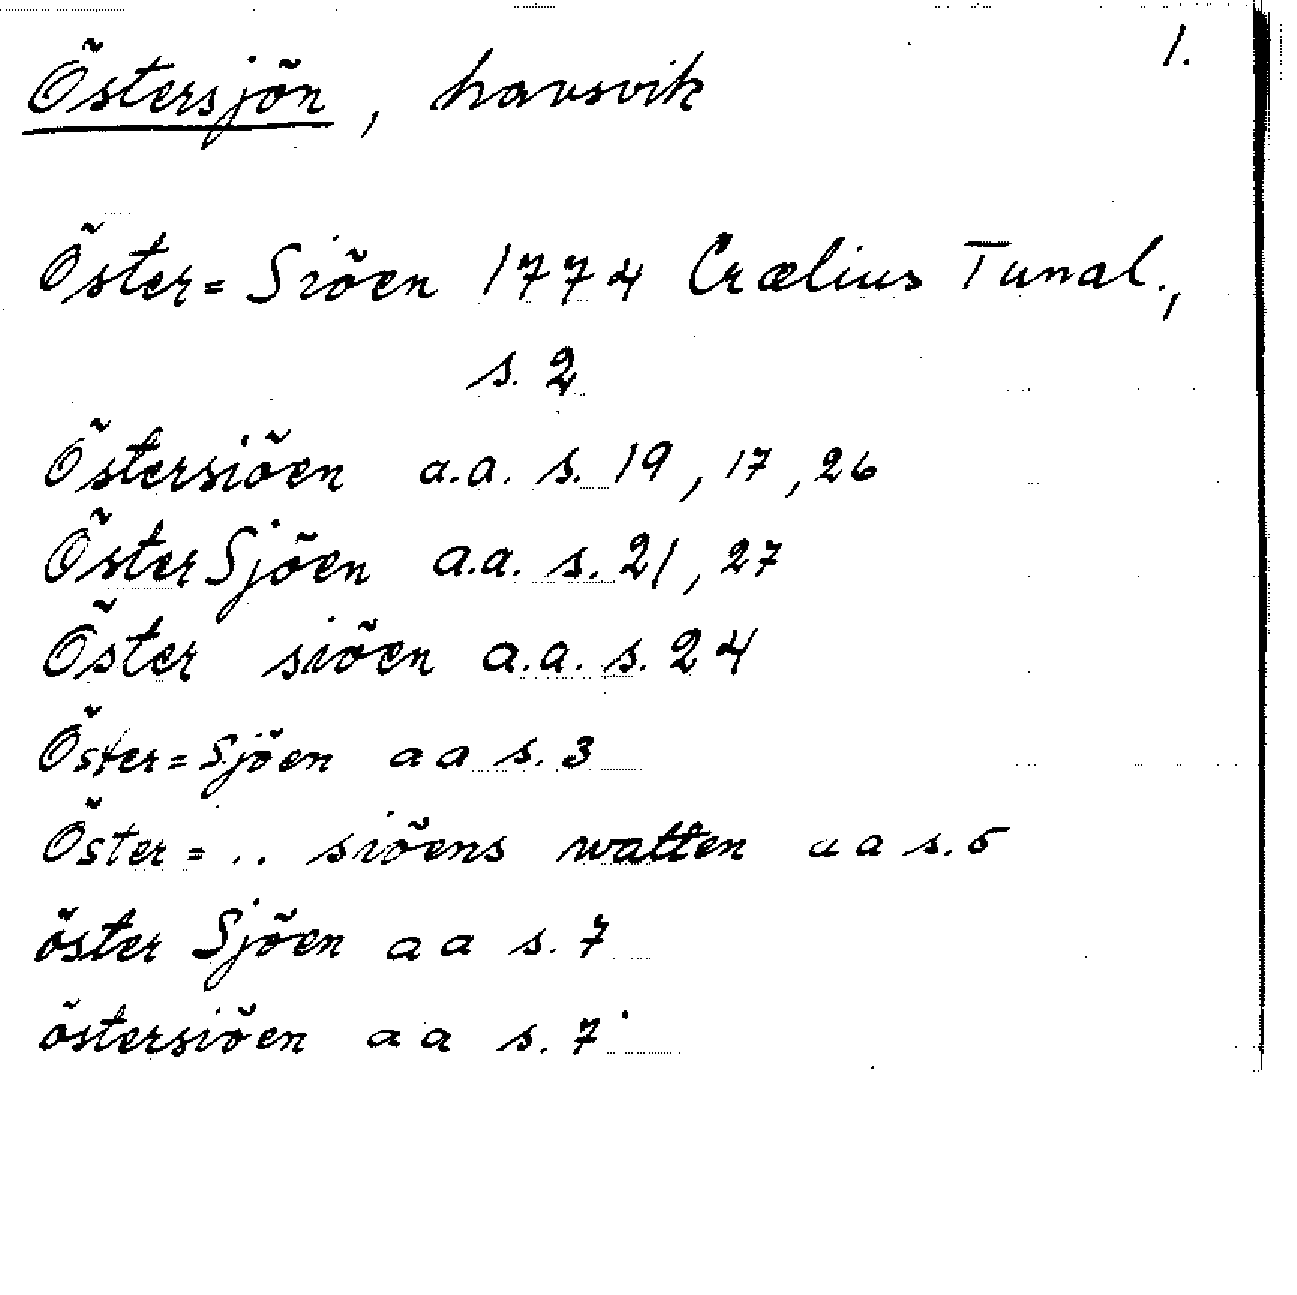 1.
Östersjön, havsvik
Öster=Siöen 1774 Crælius Tunal.,
s. 2
Östersiöen a.a. s. 19, 17, 26
ÖsterSjöen a.a. s. 21, 27
Öster siöen a.a. s. 24
Öster=Sjöen a a s. 3
Öster=.. siöens watten a a s. 5
öster Sjöen a a s. 7
östersiöen a a s. 7